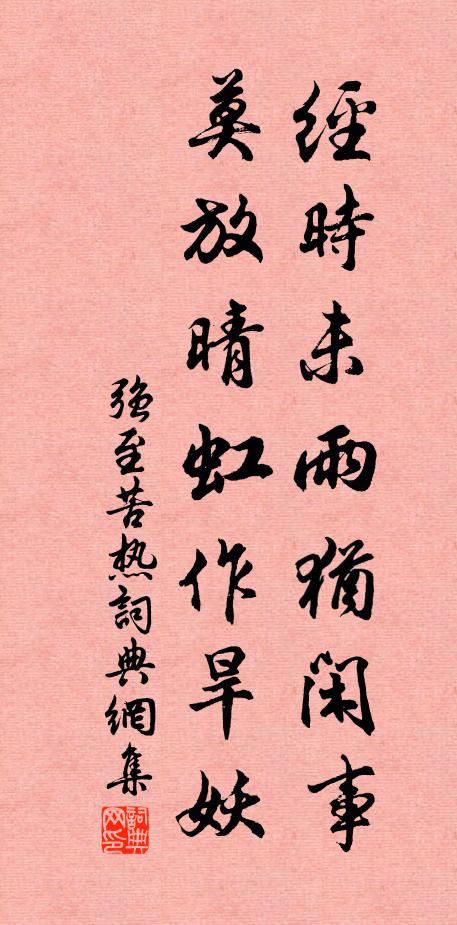 經時未雨猶閑事
莫放晴虹作旱妖
強至苦热詞典網集
詞典
网印